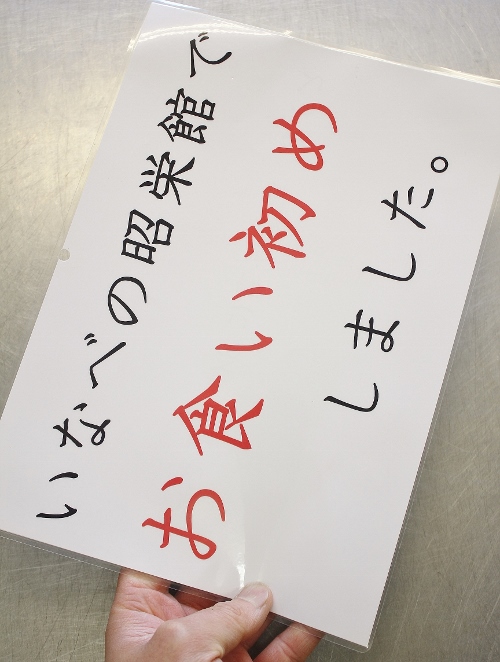 いなべの昭栄館で
お食い初め
しました。